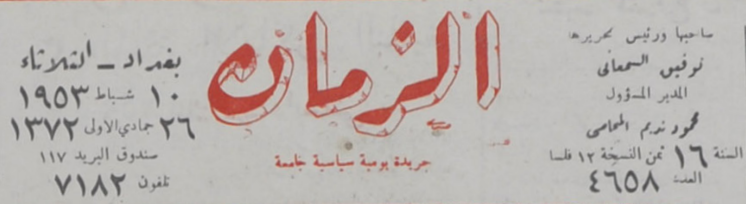 صاحبها ورئيس تحريرها
توفيق السمعاني
المدير المسؤول
محمود نديم المحامي
السنة ١٦ ثمن النسخة ١٢ فلسا
العدد ٤٦٥٨
الزمان
جريدة يومية سياسية جامعة
بغداد – الثلاثاء
١٠ شباط ١٩٥٣
٢٦ جمادي الاولى ١٣٧٢
صندوق البريد ١١٧
تلفون ٧١٨٢